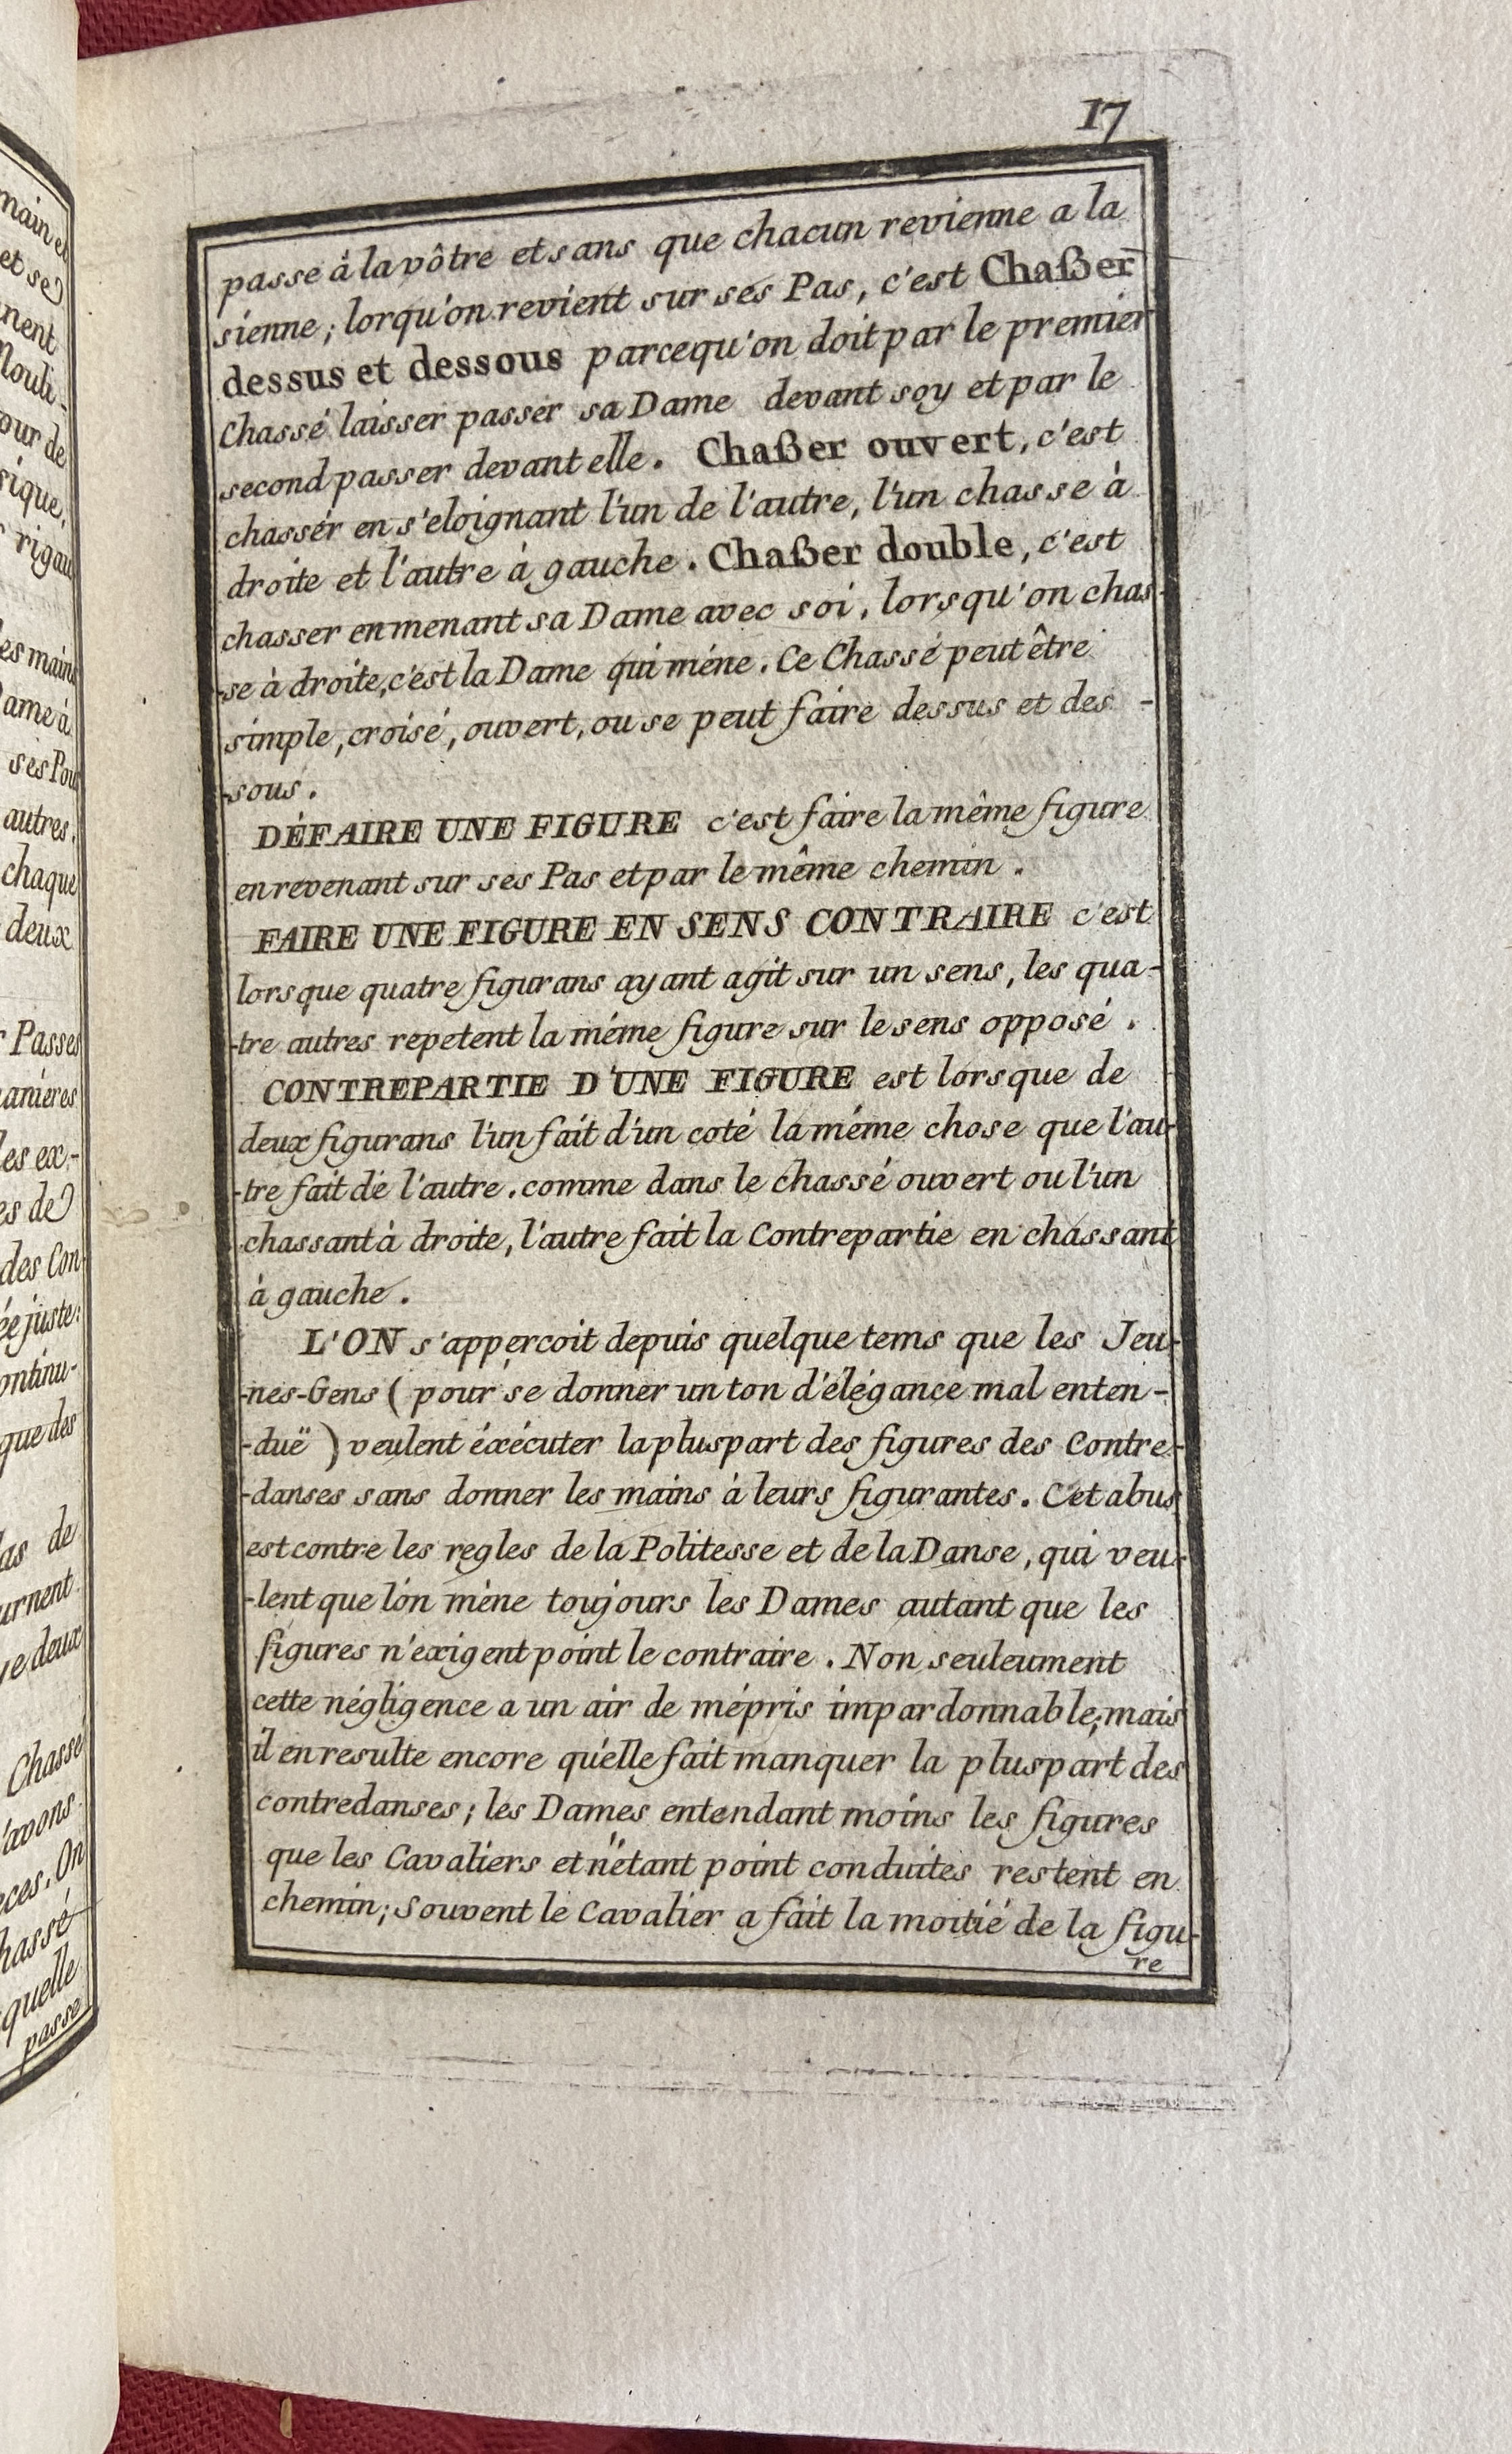 main et
et se
nent
Mouli-
our de
sique.
rigau
es mains
Dame à
ses Pou
autres.
chaque
deux
Passes
anieres
les ex-
es de
des Con-
ée juste:
ontinu-
que des
as de
urnent
ue deux
Chassé
avons
ces. On
hassé
quelle
passe
17
passe à la vôtre et sans que chacun revienne a la
sienne; lorqu'on revient sur ses Pas, c'est Chaßer
dessus et dessous parcequ'on doit par le premier
Chassé laisser passer sa Dame devant soy et par le
second passer devant elle. Chaßer ouvert, c'est
chassér en s'eloignant l'un de l'autre, l'un chasse à
droite et l'autre à gauche. Chaßer double, c'est
chasser en menant sa Dame avec soi, lorsqu'on chas-
-se à droite, c'est la Dame qui méne. Ce Chassé peut être
simple, croisé, ouvert, ou se peut faire dessus et des -
-sous.
DÉFAIRE UNE FIGURE c'est faire la même figure
en revenant sur ses Pas et par le même chemin.
FAIRE UNE FIGURE EN SENS CONTRAIRE c'est
lorsque quatre figurans ayant agit sur un sens, les qua-
-tre autres repetent la méme figure sur le sens opposé.
CONTREPARTIE D'UNE FIGURE est lorsque de
deux figurans l'un fait d'un coté la méme chose que l'au-
-tre fait de l'autre. comme dans le chassé ouvert ou l'un
chassant à droite, l'autre fait la Contrepartie en chassant
à gauche.
L'ON s'apperçoit depuis quelque tems que les Jeu-
-nes-Gens ( pour se donner un ton d'élégance mal enten-
-duë ) veulent éxécuter la pluspart des figures des Contre-
-danses sans donner les mains à leurs figurantes. Cet abus
est contre les regles de la Politesse et de la Danse, qui veu-
-lent que l'on mène toujours les Dames autant que les
figures n'exigent point le contraire. Non seuleument
cette négligence a un air de mépris impardonnable; mais
il en resulte encore qu'elle fait manquer la pluspart des
contredanses; les Dames entendant moins les figures
que les Cavaliers et n'étant point conduites restent en
chemin; Souvent le Cavalier a fait la moitié de la figu-
re